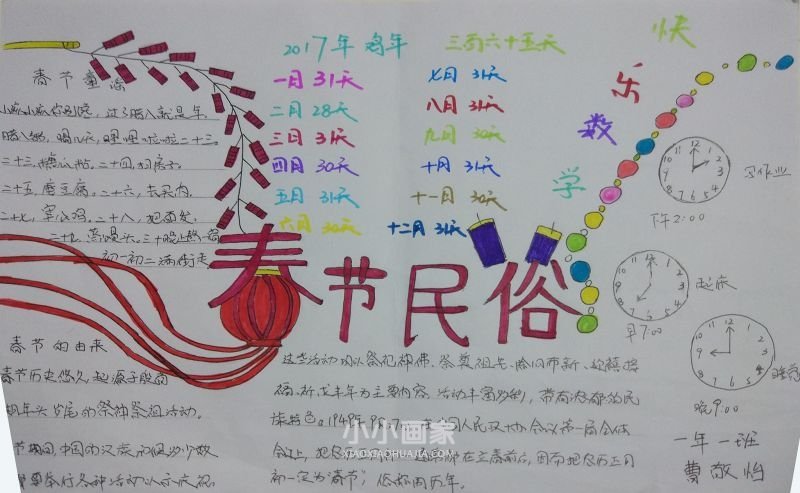 2017年 鸡年 三百六十五天
快乐数学
一月 31天 七月 31天
二月 28天 八月 31天
三月 31天 九月 30天
四月 30天 十月 31天
五月 31天 十一月 30天
六月 30天 十二月 31天
春节民俗
春节童谣
小孩小孩你别馋，过了腊八就是年
腊八粥，喝几天，哩哩啦啦二十三
二十三，糖瓜粘。二十四，扫房子
二十五，磨豆腐。二十六，去买肉
二十七，宰公鸡。二十八，把面发
二十九，蒸馒头。三十晚上熬一宿
初一初二满街走
春节的由来
春节历史悠久，起源于殷商
期年头岁尾的祭神祭祖活动。
节期间，中国的汉族和很多少数
举行各种活动以示庆祝
这些活动以祭祀神佛、祭奠祖先、除旧布新、迎禧接
福、祈求丰年为主要内容。活动丰富多彩，带有浓郁的民
族特色。1949年9月 人民政协会议第一届全体
会议上，把 在立春前后，因而把农历正月
初一定为"春节"，俗称阴历年。
小小画家
XIAOXIAOHUAJIA.COM
12 1 2 3 4 5 6 7 8 9 10 11
写作业
下午2:00
12 1 2 3 4 5 6 7 8 9 10 11
起床
早7:00
12 1 2 3 4 5 6 7 8 9 10 11
睡觉
晚9:00
一年一班
曹敬怡